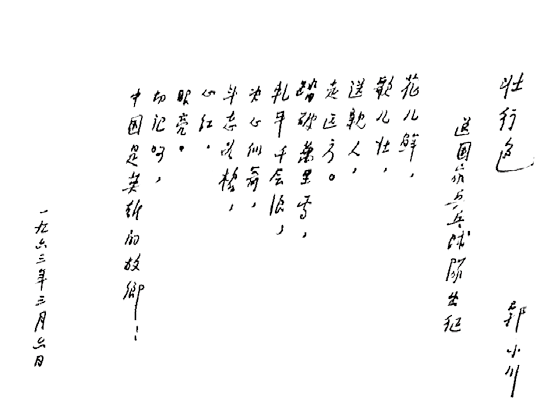 壮行色
郭小川
送国家乒乓球队出征
花儿鲜，
歌儿壮，
送亲人，
走远方。
踏破萬里，
轧平千层浪，
决心似箭，
斗志，
心红，
眼亮。
切记呵，
中国是英雄的故鄉！
一九六三年三月六日